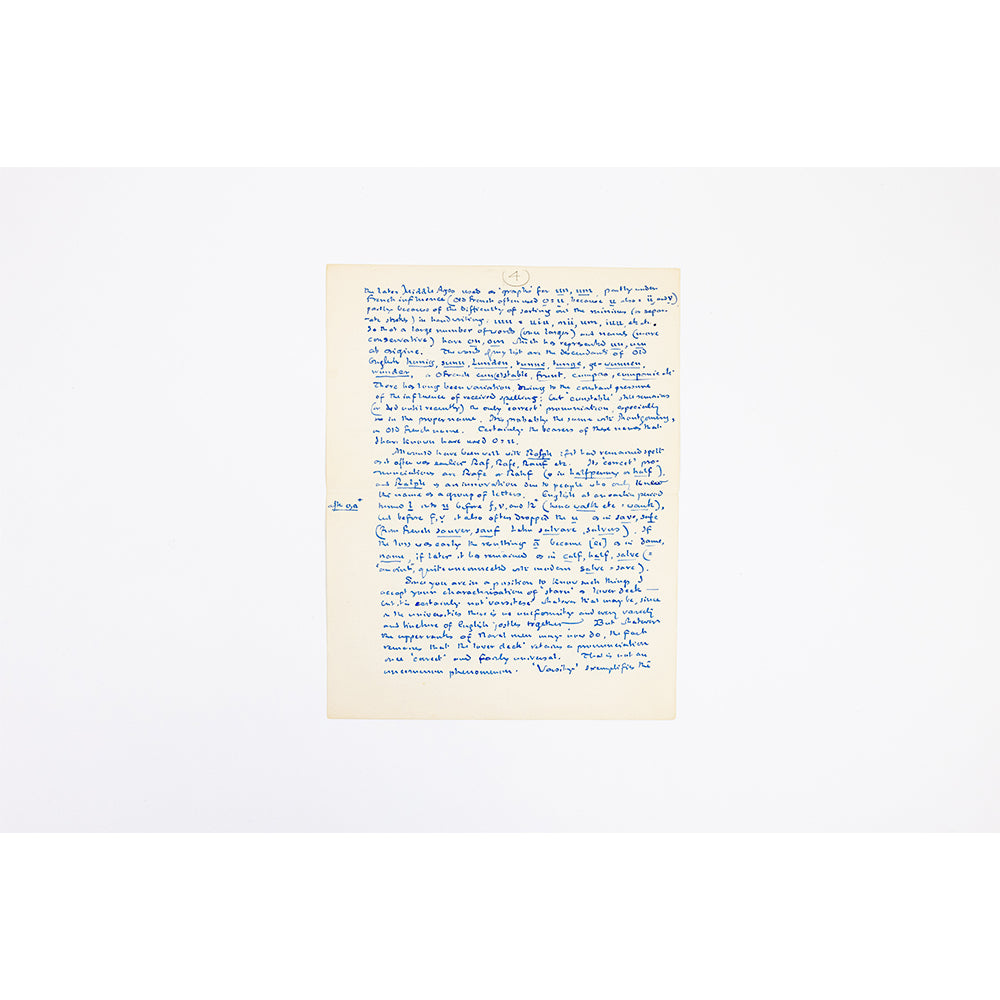 4
the later Middle Ages used as 'graphs' for un, um, partly under
French influence (Old French often used o = u, because u also = ü and v)
partly because of the difficulty of sorting out the minims (or separ-
-ate strokes) in handwriting: uu = uiu, nii, um, iuu, etc.
So that a large number of words (once larger) and names (more
conservative) have on, om which has represented un, um
at origine. The words of my list are the descendants of Old
English hunig, sunu, Lunden, tunne, tunge, ge-wunnen
wunder, or OFrench cunestable, frunt, cumpas, cumpanie etc
There has long been variation, owing to the constant pressure
of the influence of received spelling; but 'cunstable' still remains
(or did until recently) the only 'correct' pronunciation, especially
so in the proper name. It is probably the same with Montgomery,
an Old French name. Certainly the bearers of these names that
I have known have used o = u.
All would have been well with Ralph if it had remained spelt
as it often was earlier Raf, Rafe, Rauf etc. Its 'correct' pro-
nunciations are Rafe or Rahf (as in halfpenny or half),
and Ralph is an innovation due to people who only knew
the name as a group of letters. English at an earlier period
after o, a
turned l into u before f, v, and k (hence walk etc = wauk),
but before f, v it also often dropped the u as in save, safe
(from French sauver, sauf Latin salvare, salvus). If
the loss was early the resulting a became [ei] as in dame,
name; if later it has remained as in calf, half, salve (=
'anoint', quite unconnected with modern salve = save).
Since you are in a position to know such things I
accept your characterization of 'starn' as lower deck —
but it is certainly not 'varsitese' whatever that may be, since
in the universities there is no uniformity and every variety
and tincture of English jostles together — But whatever
the upper ranks of Naval men may now do, the fact
remains that the 'lower deck' retains a pronunciation
once 'correct' and fairly universal. That is not an
uncommon phenomenon. 'Varsity' exemplifies the